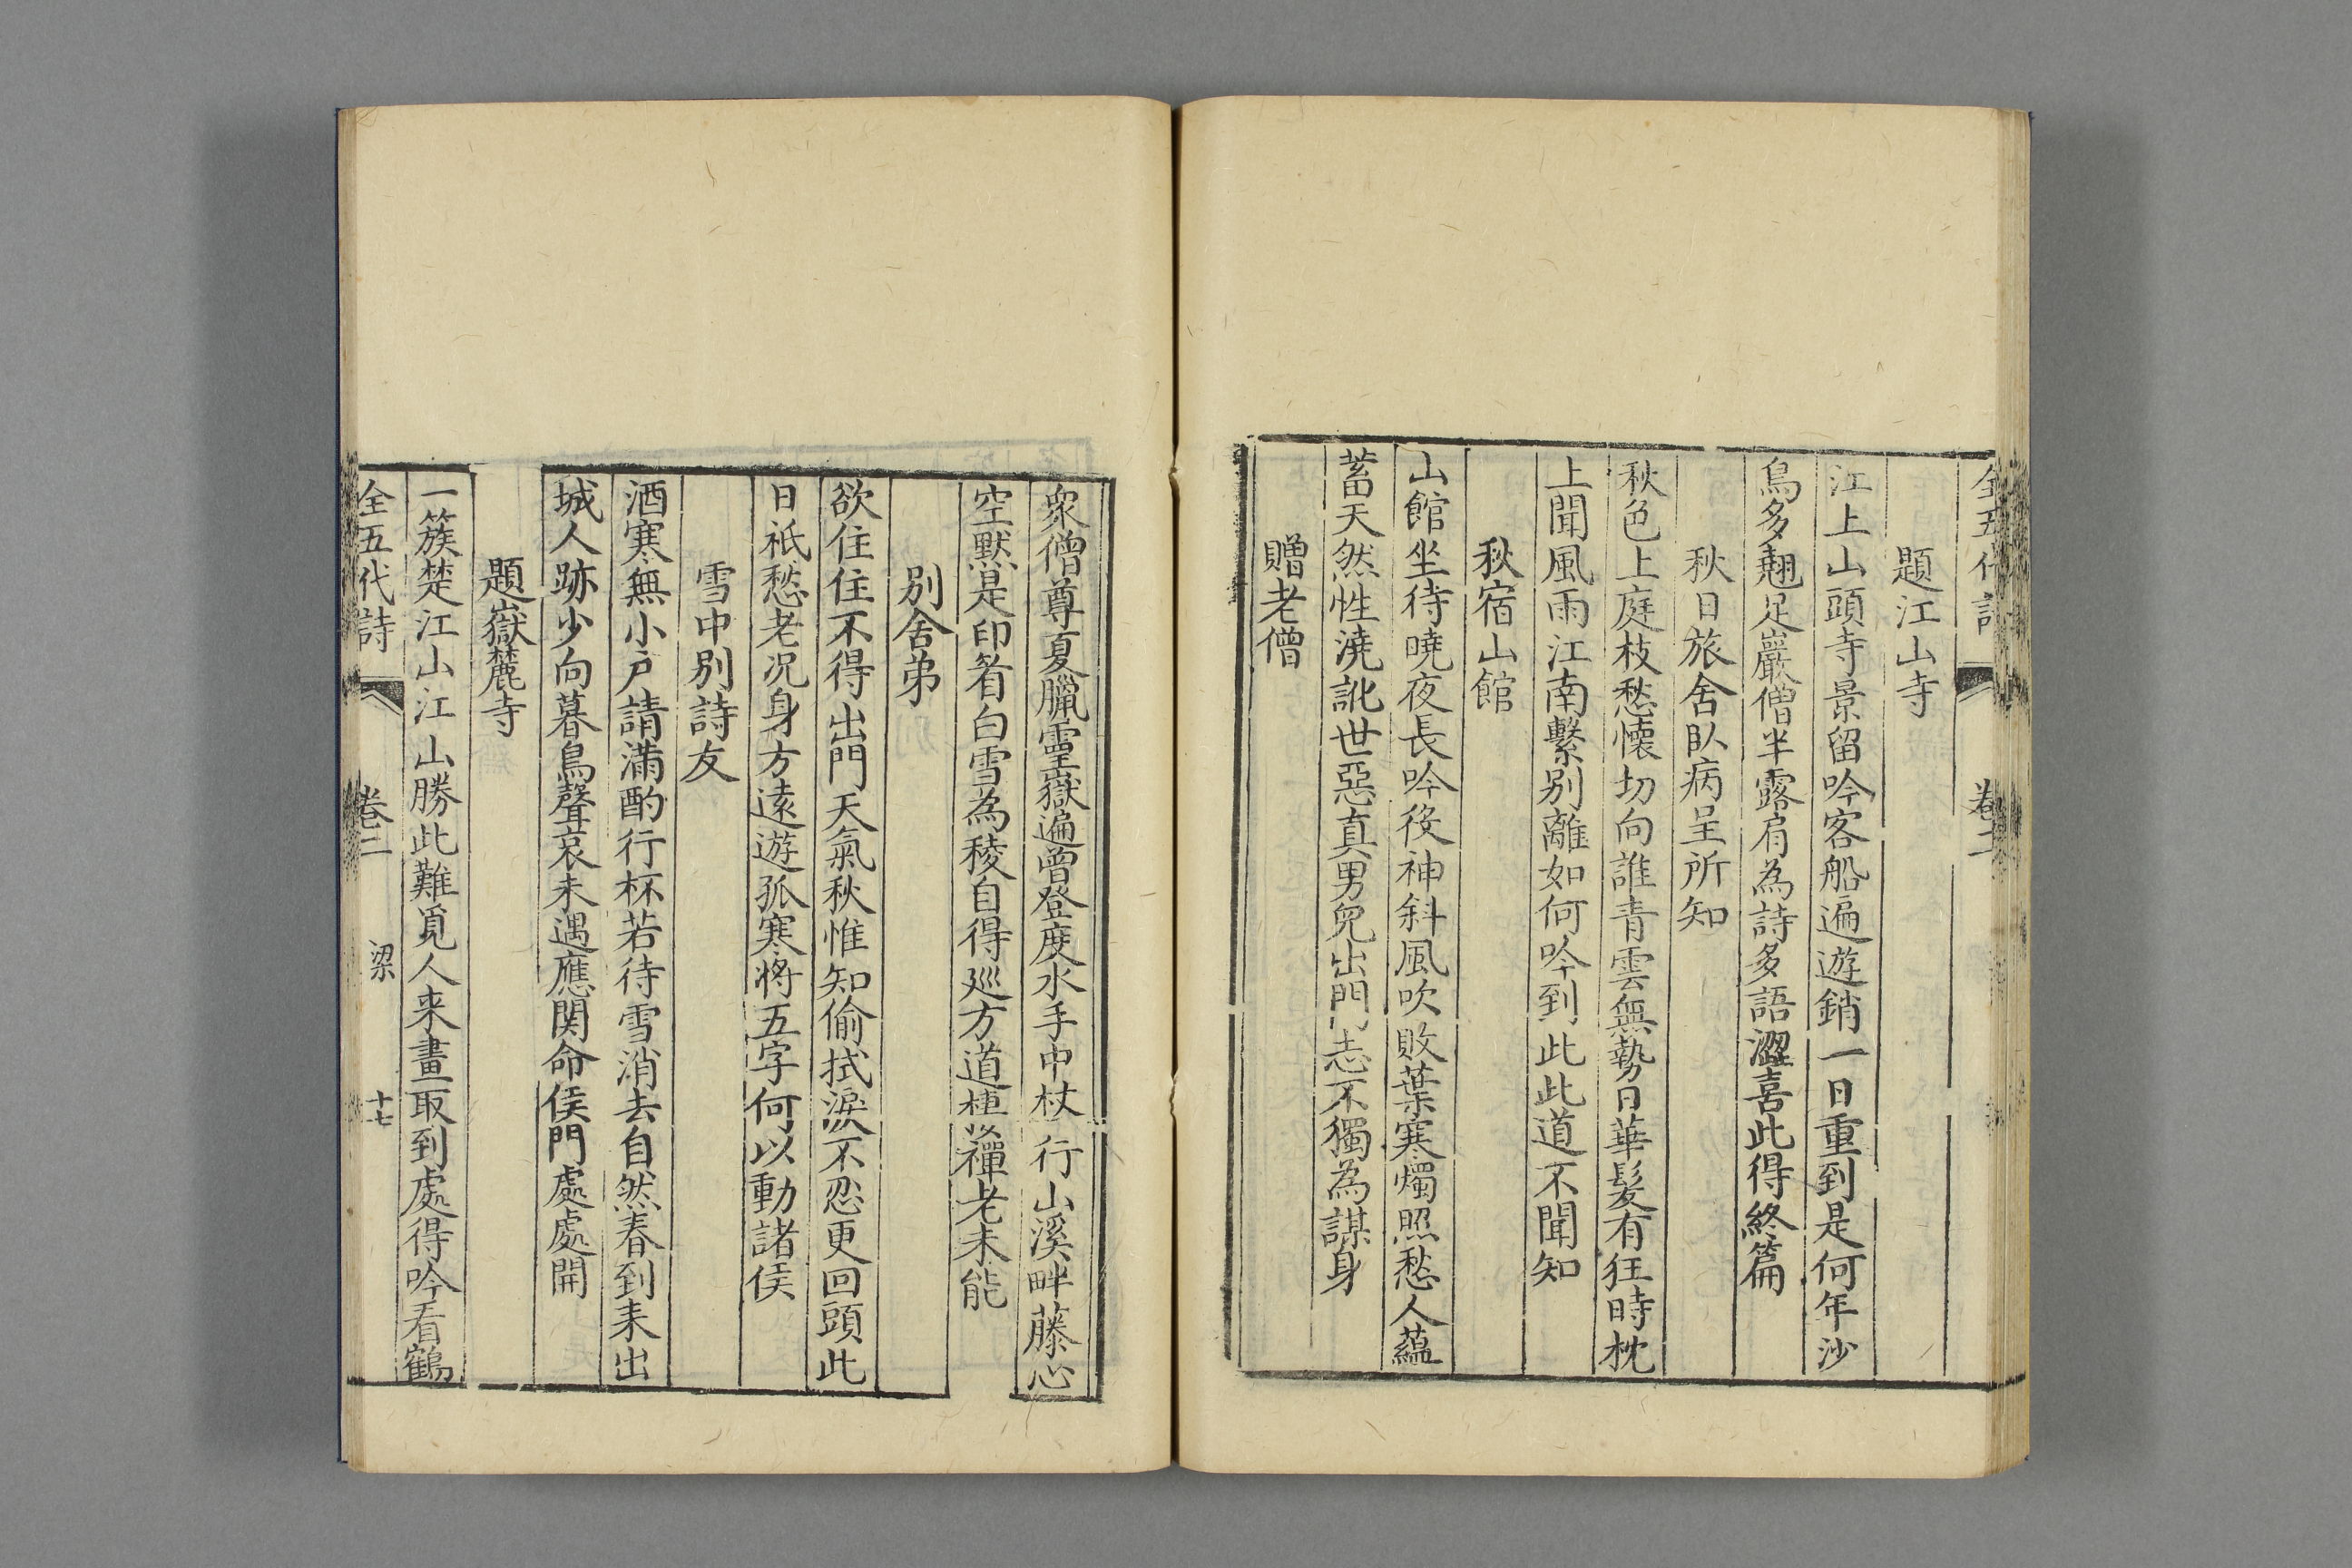 全五代詩 卷二
題江山寺
江上山頭寺景留吟客船遍遊銷一日重到是何年沙
鳥多翹足巖僧半露肩為詩多語澀喜此得終篇
秋日旅舍臥病呈所知
秋色上庭枝愁懷切向誰青雲無勢日華髮有狂時枕
上聞風雨江南繫別離如何吟到此此道不聞知
秋宿山館
山館坐待曉夜長吟役神斜風吹敗葉寒燭照愁人蘊
蓄天然性澆訛世惡真男兒出門志不獨為謀身
贈老僧
眾僧尊夏臘靈嶽遍曾登度水手中杖行山溪畔藤心
空默是印眉白雪為稜自得巡方道栖禪老未能
別舍弟
欲住住不得出門天氣秋惟知偷拭淚不忍更回頭此
日祇愁老況身方遠遊孤寒將五字何以動諸侯
雪中別詩友
酒寒無小戶請滿酌行杯若待雪消去自然春到來出
城人跡少向暮鳥聲哀未遇應関命侯門處處開
題嶽麓寺
一簇楚江山江山勝此難覓人来畫取到處得吟看鶴
全五代詩 卷二 梁 十七